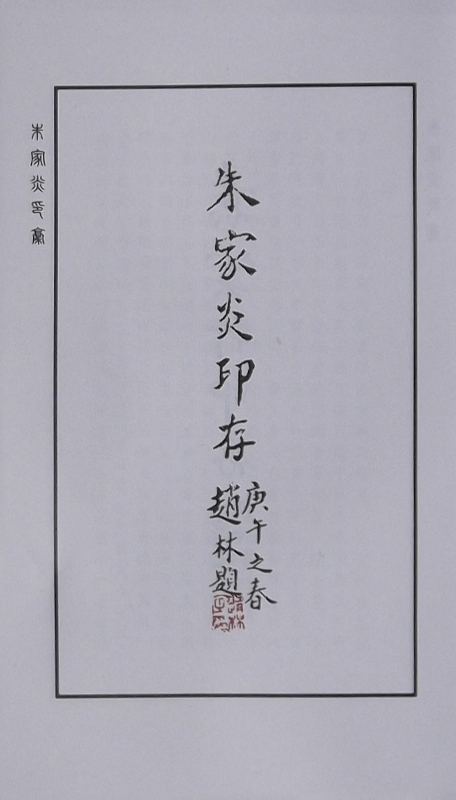 朱家炎印存
庚午之春
趙林題
朱家炎印稾